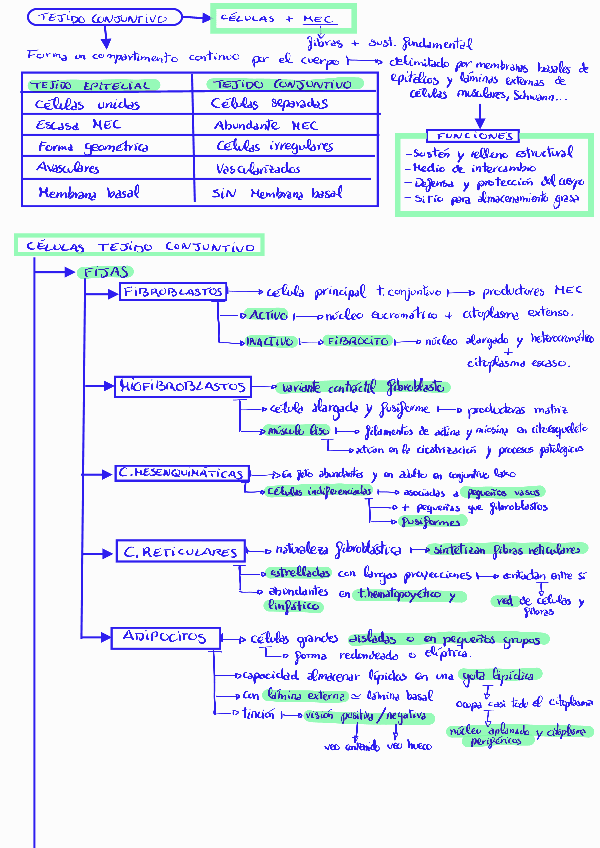 TEJIDO CONJUNTIVO
CÉLULAS + MEC
fibras + sust. fundamental
Forma un compartimento continuo por el cuerpo
delimitado por membranas basales de
epitelios y láminas externas de
células musculares, Schwann...
TEJIDO EPITELIAL TEJIDO CONJUNTIVO
Células unidas Células separadas
Escasa MEC Abundante MEC
Forma geométrica Células irregulares
Avasculares Vascularizados
Membrana basal SIN Membrana basal
FUNCIONES
- Sostén y relleno estructural
- Medio de intercambio
- Defensa y protección del cuerpo
- Sitio para almacenamiento grasa
CÉLULAS TEJIDO CONJUNTIVO
FIJAS
FIBROBLASTOS célula principal t. conjuntivo productores MEC
ACTIVO núcleo eucromático + citoplasma extenso.
INACTIVO FIBROCITO núcleo alargado y heterocromático
+
citoplasma escaso.
MIOFIBROBLASTOS variante contráctil fibroblasto
célula alargada y fusiforme productoras matriz
músculo liso filamentos de actina y miosina en citoesqueleto
actúan en la cicatrización y procesos patológicos
C. MESENQUIMÁTICAS En feto abundantes y en adulto en conjuntivo laxo
células indiferenciadas asociadas a pequeños vasos
+ pequeñas que fibroblastos
fusiformes
C. RETICULARES naturaleza fibroblástica sintetizan fibras reticulares
estrelladas con largas proyecciones contactan entre sí
abundantes en t. hematopoyético y
linfático
red de células y
fibras
ADIPOCITOS células grandes aisladas o en pequeños grupos
forma redondeada o elíptica.
capacidad almacenar lípidos en una gota lipídica
con lámina externa ≃ lámina basal
ocupa casi todo el citoplasma
tinción visión positiva/negativa
núcleo aplanado y citoplasma
periféricos
veo contenido veo hueco